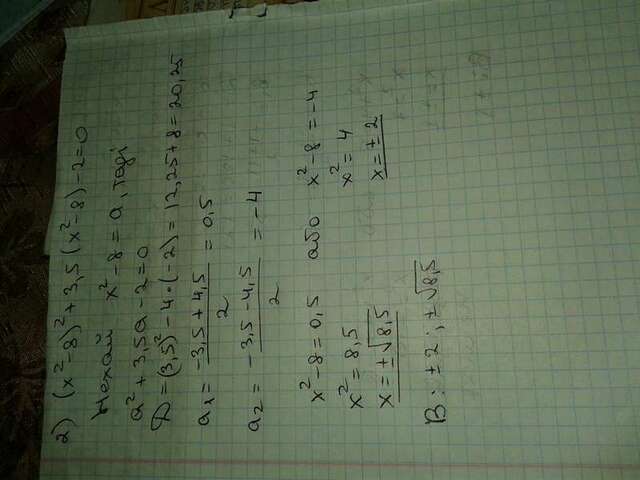 2) (x²-8)²+3,5(x²-8)-2=0
Нехай x²-8=a, тоді
a²+3,5a-2=0
D=(3,5)²-4·(-2)=12,25+8=20,25
a₁=(-3,5+4,5)/2=0,5
a₂=(-3,5-4,5)/2=-4
x²-8=0,5 або x²-8=-4
x²=8,5 x²=4
x=±√8,5 x=±2
В: ±2; ±√8,5